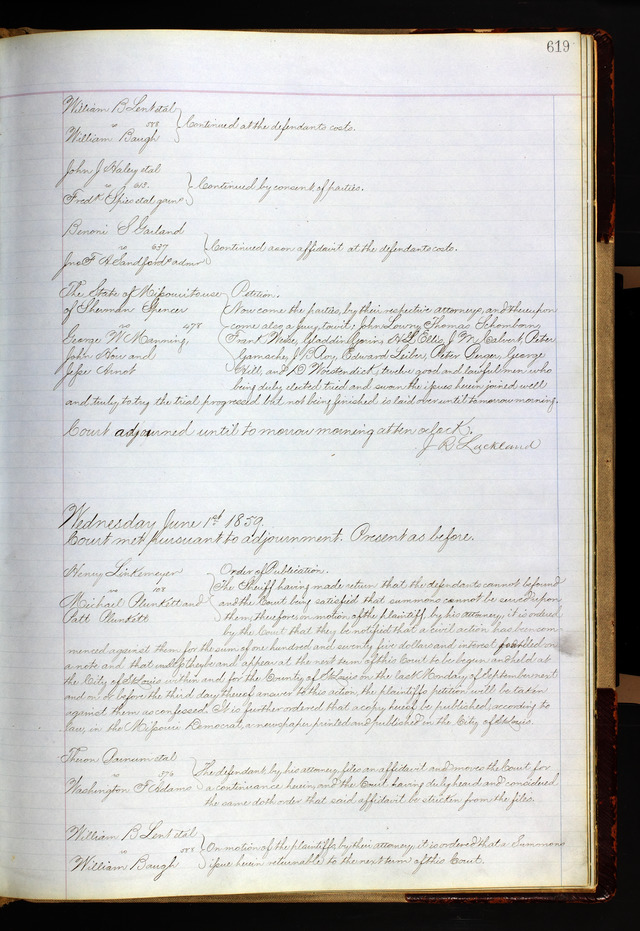 619
William B Lent et al
vs 588
William Baugh
Continued at the defendants costs.
John J Haley et al
vs 613
Fredk Spies et al garns
Continued by consent of parties.
Benoni S Garland
vs 637
Jno F A Sandford's admr
Continued as on affidavit at the defendants costs.
The State of Missouri to use
of Sherman Spencer
vs 478
George W Manning
John How and
Jesse Arnot
Petition.
Now come the parties, by their respective attorneys, and thereupon
come also a jury, to wit; John Lowry, Thomas Schomborn,
Frank Weise, Gladdin Gorin, H L Ellis, J W Calvert, Peter
Gamache, J B Roy, Edward Leiber, Peter Peiger, George
Hill, and D Woestendick, twelve good and lawful men, who
being duly elected tried and sworn the issues herein joined well
and truly to try the trial progressed but not being finished is laid over until tomorrow morning.
Court adjourned until to morrow morning at ten oclock.
J R Lackland
Wednesday June 1st 1859.
Court met pursuant to adjournment. Present as before.
Henry Linkemeyer
vs 108
Michael Plunkett and
Patt Plunkett
Order of Publication.
The Sheriff having made return that the defendants cannot be found
and the Court being satisfied that summons cannot be served upon
them, therefore, on motion of the plaintiff, by his attorney, it is ordered
by the Court that they be notified that a civil action has been com-
menced against them for the sum of one hundred and seventy five dollars and interest founded on
a note and that unless they be and appear at the next term of this Court to be begun and held at
the City of St Louis within and for the County of St Louis on the last Monday of September next
and on or before the third day thereof answer to this action, the plaintiffs petition will be taken
against them as confessed. It is further ordered that a copy hereof be published according to
law, in the Missouri Democrat, a newspaper printed and published in the City of St Louis.
Theron Barnum et al
vs 376
Washington F Adams
The defendant, by his attorney, files an affidavit and moves the Court for
a continuance herein, and the Court having duly heard and considered
the same doth order that said affidavit be stricken from the files.
William B Lent et al
vs 588
William Baugh
On motion of the plaintiffs, by their attorney, it is ordered that a Summons
issue herein returnable to the next term of this Court.